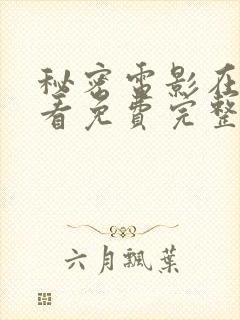 秘密电影在
看免费完整
六月飘叶